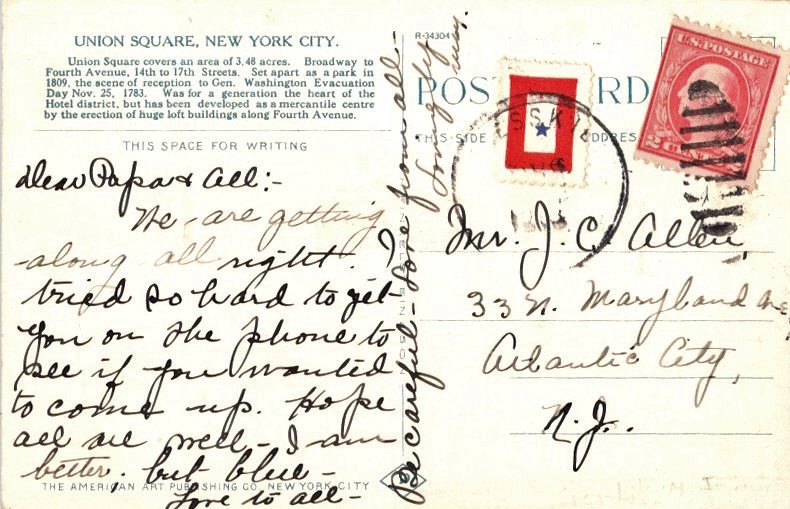 UNION SQUARE, NEW YORK CITY.
Union Square covers an area of 3.48 acres. Broadway to
Fourth Avenue, 14th to 17th Streets. Set apart as a park in
1809, the scene of reception to Gen. Washington Evacuation
Day Nov. 25, 1783. Was for a generation the heart of the
Hotel district, but has been developed as a mercantile centre
by the erection of huge loft buildings along Fourth Avenue.
THIS SPACE FOR WRITING
Dear Papa & All:-
We are getting
along all right. I
tried so hard to get
you on the phone to
see if you wanted
to come up. Hope
all are well - I am
better, but blue -
Love to all -
THE AMERICAN ART PUBLISHING CO. NEW YORK CITY
Be careful - Love from all -
R-34304
POST RD
THIS SIDE ADDRESS
U.S. POSTAGE
Mr. J. C. Allen
33 N. Maryland Ave
Atlantic City,
N. J.